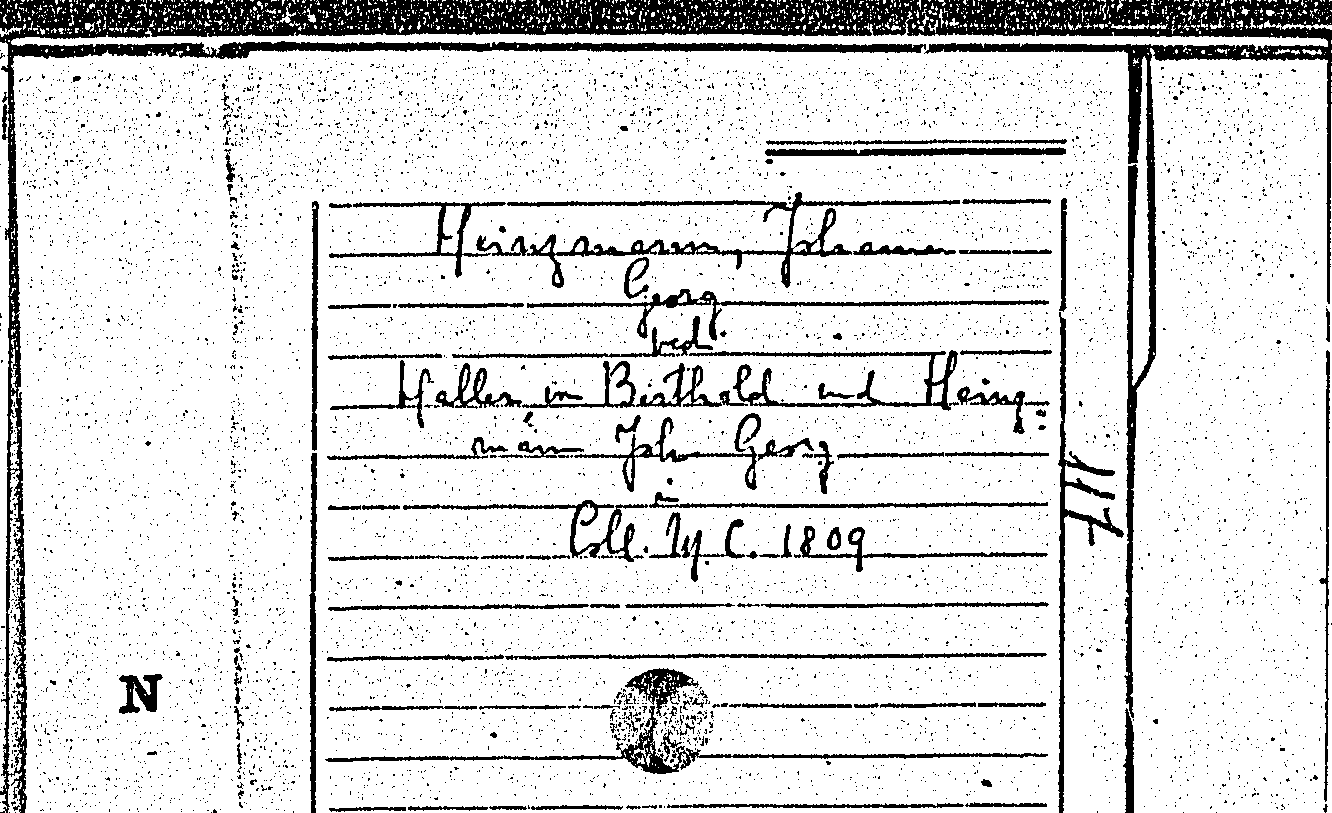 Heinzmann, Johann
Georg
Haller, in Birthold und Heinz-
mann Joh. Georg
Coll. C. 1809
N